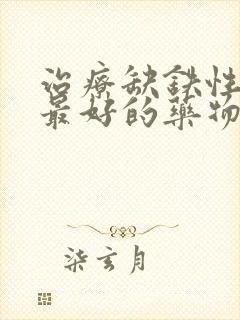 治療缺鉄性
最好的藥物
柒玄月